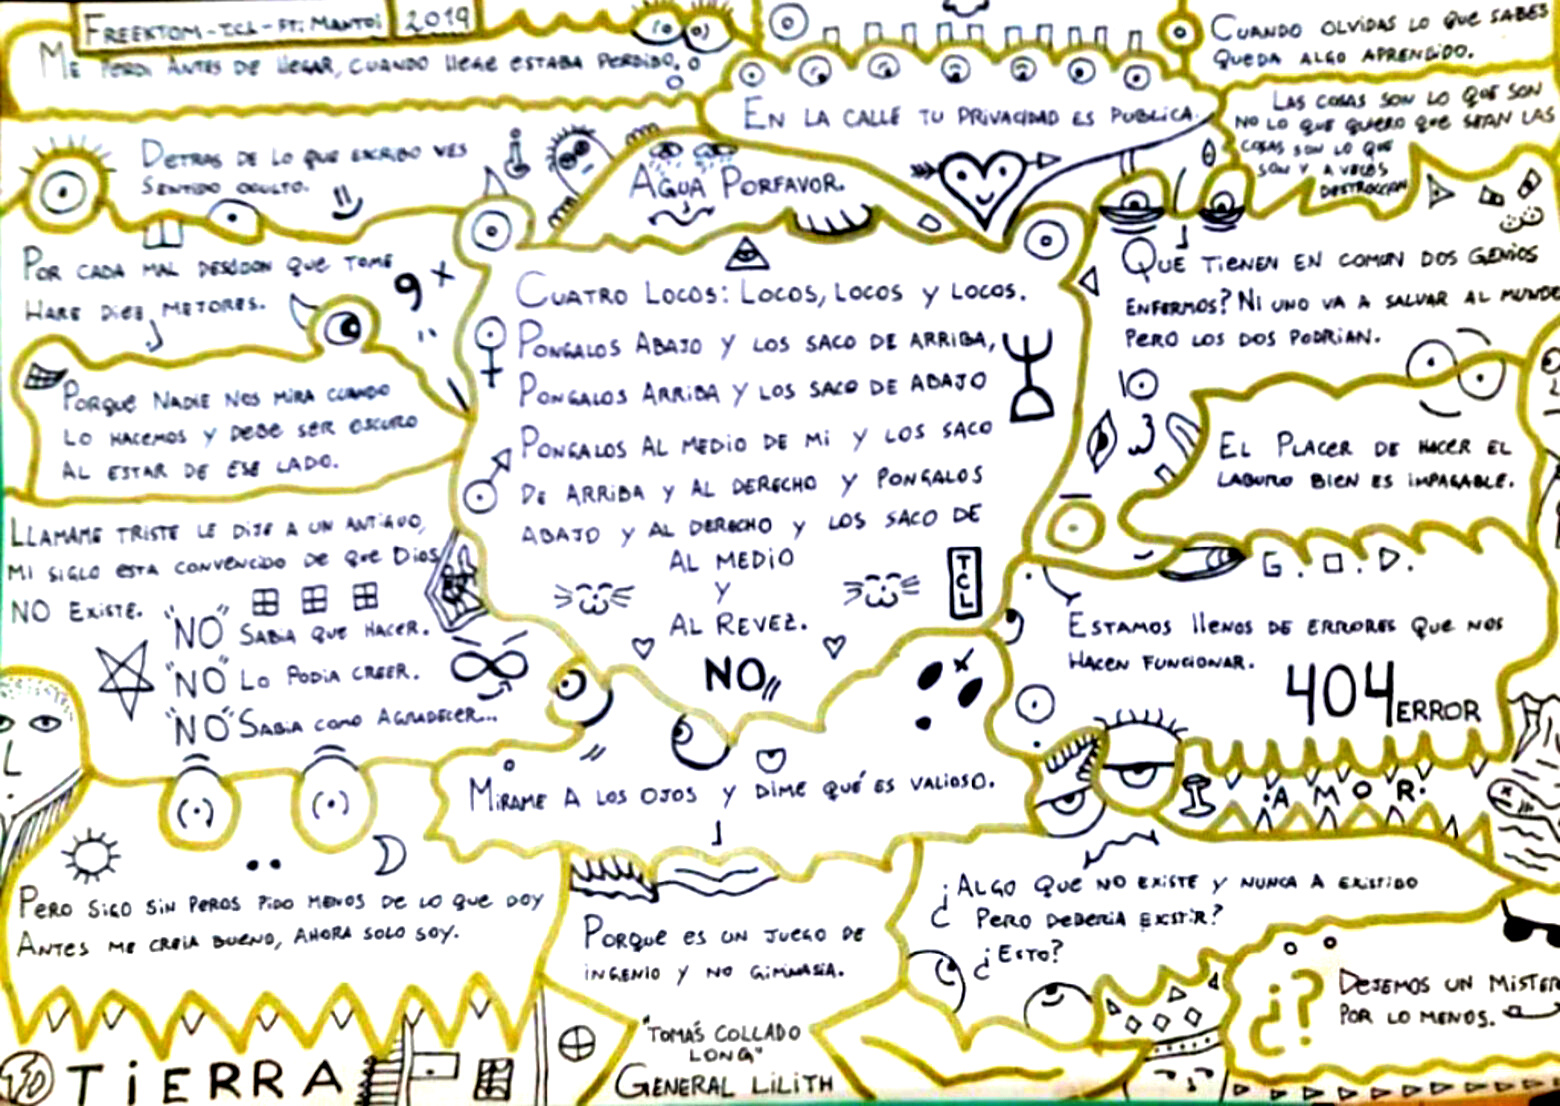 FREEKTOM-TCL-FT: MANTOI 2019
ME PERDI ANTES DE LLEGAR, CUANDO LLEGE ESTABA PERDIDO.
CUANDO OLVIDAS LO QUE SABES
QUEDA ALGO APRENDIDO.
EN LA CALLE TU PRIVACIDAD ES PUBLICA.
LAS COSAS SON LO QUE SON
NO LO QUE QUIERO QUE SEAN LAS
COSAS SON LO QUE
SON Y A VECES
DESTROCCION
DETRAS DE LO QUE ESCRIBO VES
SENTIDO OCULTO.
AGUA PORFAVOR.
POR CADA MAL DESICION QUE TOME
HARE DIES MEJORES.
9 +
CUATRO LOCOS: LOCOS, LOCOS Y LOCOS.
PONGALOS ABAJO Y LOS SACO DE ARRIBA,
PONGALOS ARRIBA Y LOS SACO DE ABAJO
PONGALOS AL MEDIO DE MI Y LOS SACO
DE ARRIBA Y AL DERECHO Y PONGALOS
ABAJO Y AL DERECHO Y LOS SACO DE
AL MEDIO
Y
AL REVEZ.
NO
TCL
QUE TIENEN EN COMUN DOS GENIOS
ENFERMOS? NI UNO VA A SALVAR AL MUNDO
PERO LOS DOS PODRIAN.
PORQUE NADIE NOS MIRA CUANDO
LO HACEMOS Y DEBE SER OSCURO
AL ESTAR DE ESE LADO.
EL PLACER DE HACER EL
LABURO BIEN ES IMPAGABLE.
LLAMAME TRISTE LE DIJE A UN ANTIGUO,
MI SIGLO ESTA CONVENCIDO DE QUE DIOS
NO EXISTE.
"NO" SABIA QUE HACER.
"NO" LO PODIA CREER.
"NO" SABIA COMO AGRADECER...
ESTAMOS LLENOS DE ERRORES QUE NOS
HACEN FUNCIONAR.
404 ERROR
MIRAME A LOS OJOS Y DIME QUÉ ES VALIOSO.
:AMOR:
PERO SIGO SIN PEROS PIDO MENOS DE LO QUE DOY
ANTES ME CREIA BUENO, AHORA SOLO SOY.
PORQUE ES UN JUEGO DE
INGENIO Y NO GIMNASIA.
¿ALGO QUE NO EXISTE Y NUNCA A EXISTIDO
¿ PERO DEBERIA EXSTIR?
¿ESTO?
¿? DEJEMOS UN MISTER
POR LO MENOS.
TIERRA
"TOMÁS COLLADO
LONG"
GENERAL LILITH